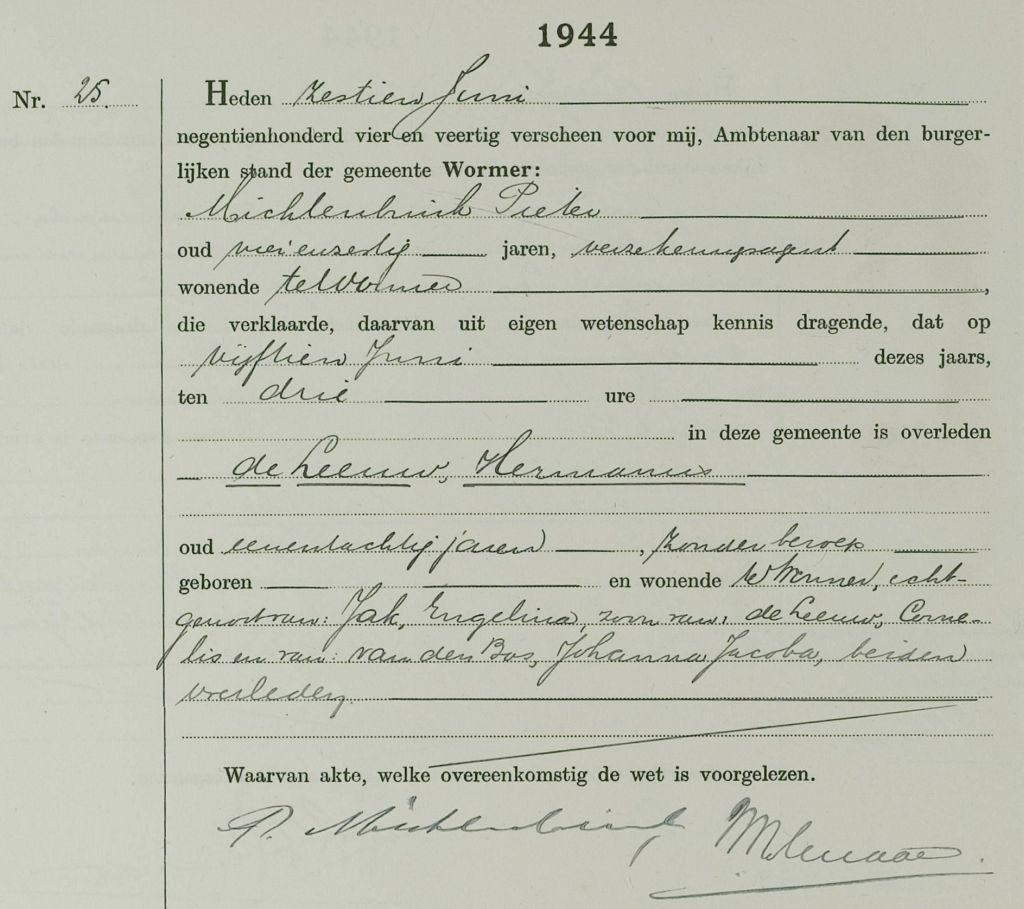 1944
Nr. 25.
Heden zestien Juni
negentienhonderd vier en veertig verscheen voor mij, Ambtenaar van den burger-
lijken stand der gemeente Wormer:
Michlenbrink Pieter
oud vierenzestig jaren, verzekeringsagent
wonende te Wormer,
die verklaarde, daarvan uit eigen wetenschap kennis dragende, dat op
vijftien Juni dezes jaars,
ten drie ure
in deze gemeente is overleden
de Leeuw, Hermanus
oud eenentachtig jaren, zonder beroep
geboren en wonende te Wormer, echt-
genoot van: Jak, Engelina, zoon van: de Leeuw, Corne-
lis en van: van den Bos, Johanna Jacoba, beiden
overleden.
Waarvan akte, welke overeenkomstig de wet is voorgelezen.
P. Michlenbrink